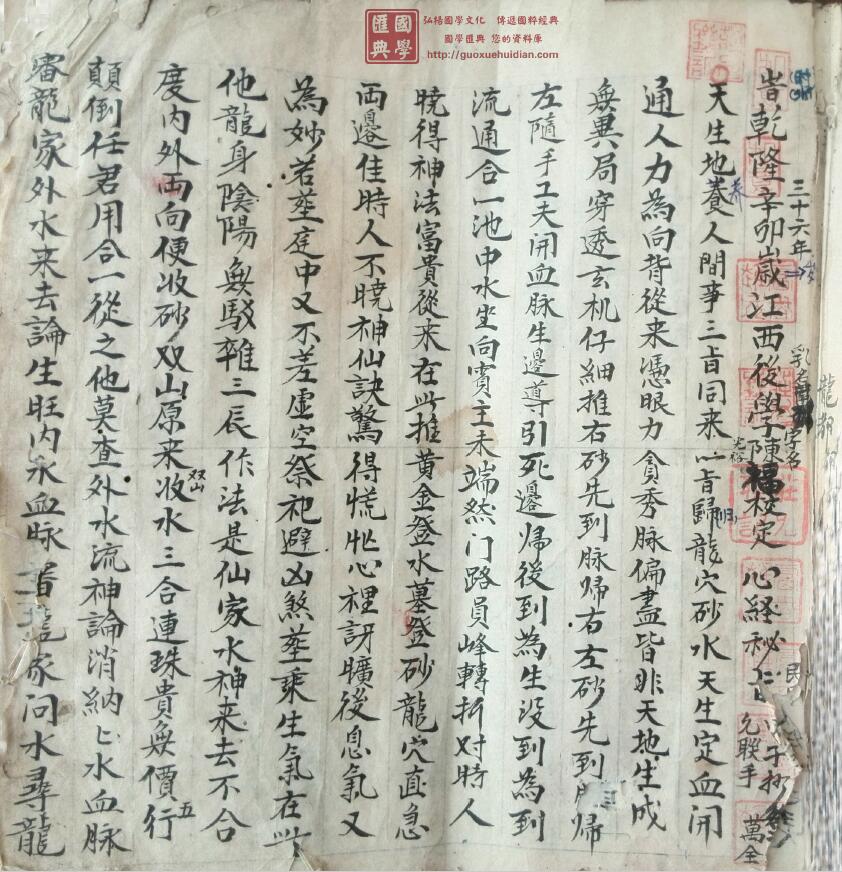 國學匯典
弘揚國學文化 傳遞國粹經典
國學匯典 您的資料庫
http://guoxuehuidian.com
三十六年
旹乾隆辛卯歲江西後學陳福校定 心経秘旨
天生地養人間事三旨同来一旨歸龍穴砂水天生定血開
通人力為向背從来憑眼力貪秀脉偏盡皆非天地生成
無異局穿透玄机仔細推右砂先到脉歸右左砂先到脉歸
左隨手工夫開血脉生邊導引死邊帰後到為生没到為到
流通合一池中水坐向賓主未端然门路員峰轉折对時人
曉得神法富貴從来在此推黄金登水墓登砂龍穴直急
両邉佳時人不曉神仙訣驚得慌忙心裡訝曠後息氣又
為妙若塟莚中又不差虚空祭祀避凶煞塟乘生氣在此
他龍身陰陽無駁雜三辰作法是仙家水神来去不合
度内外両向便收砂双山原来收水三合連珠貴無價行
双山
五
顛倒任君用合一從之他莫查外水流神論消納上水血脉
審龍家外水来去論生旺内水血脉
家问水尋龍
萬全